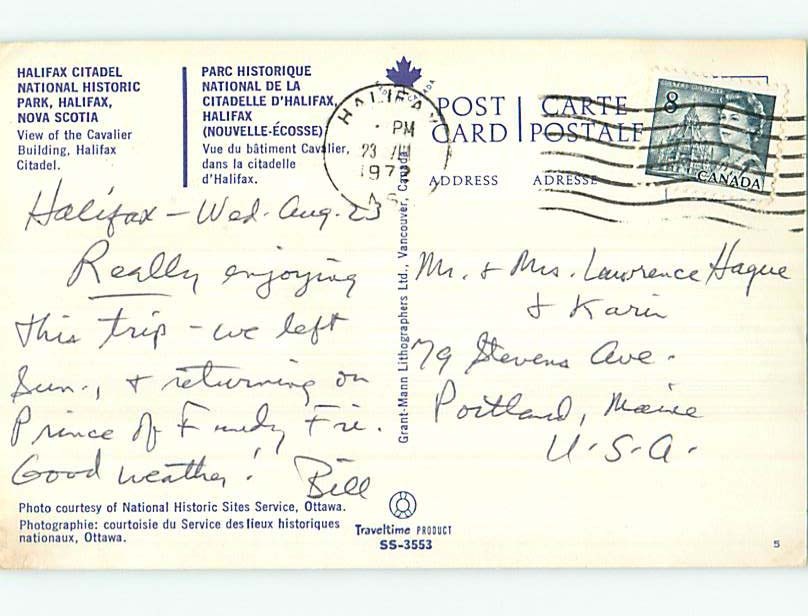 HALIFAX CITADEL
NATIONAL HISTORIC
PARK, HALIFAX,
NOVA SCOTIA
View of the Cavalier
Building, Halifax
Citadel.
PARC HISTORIQUE
NATIONAL DE LA
CITADELLE D'HALIFAX,
HALIFAX
(NOUVELLE-ÉCOSSE)
Vue du bâtiment Cavalier,
dans la citadelle
d'Halifax.
Halifax - Wed. Aug. 23
Really enjoying
this trip - we left
Sun., & returning on
Prince of Fundy Fri.
Good weather!
Bill
Photo courtesy of National Historic Sites Service, Ottawa.
Photographie: courtoisie du Service des lieux historiques
nationaux, Ottawa.
HALIFAX
PM
23
1972
N.S.
Grant-Mann Lithographers Ltd., Vancouver, Canada
POST CARD
CARTE POSTALE
ADDRESS
ADRESSE
8
CANADA
Mr. & Mrs. Lawrence Hague
& Karin
79 Stevens Ave.
Portland, Maine
U.S.A.
Traveltime PRODUCT
SS-3553
5